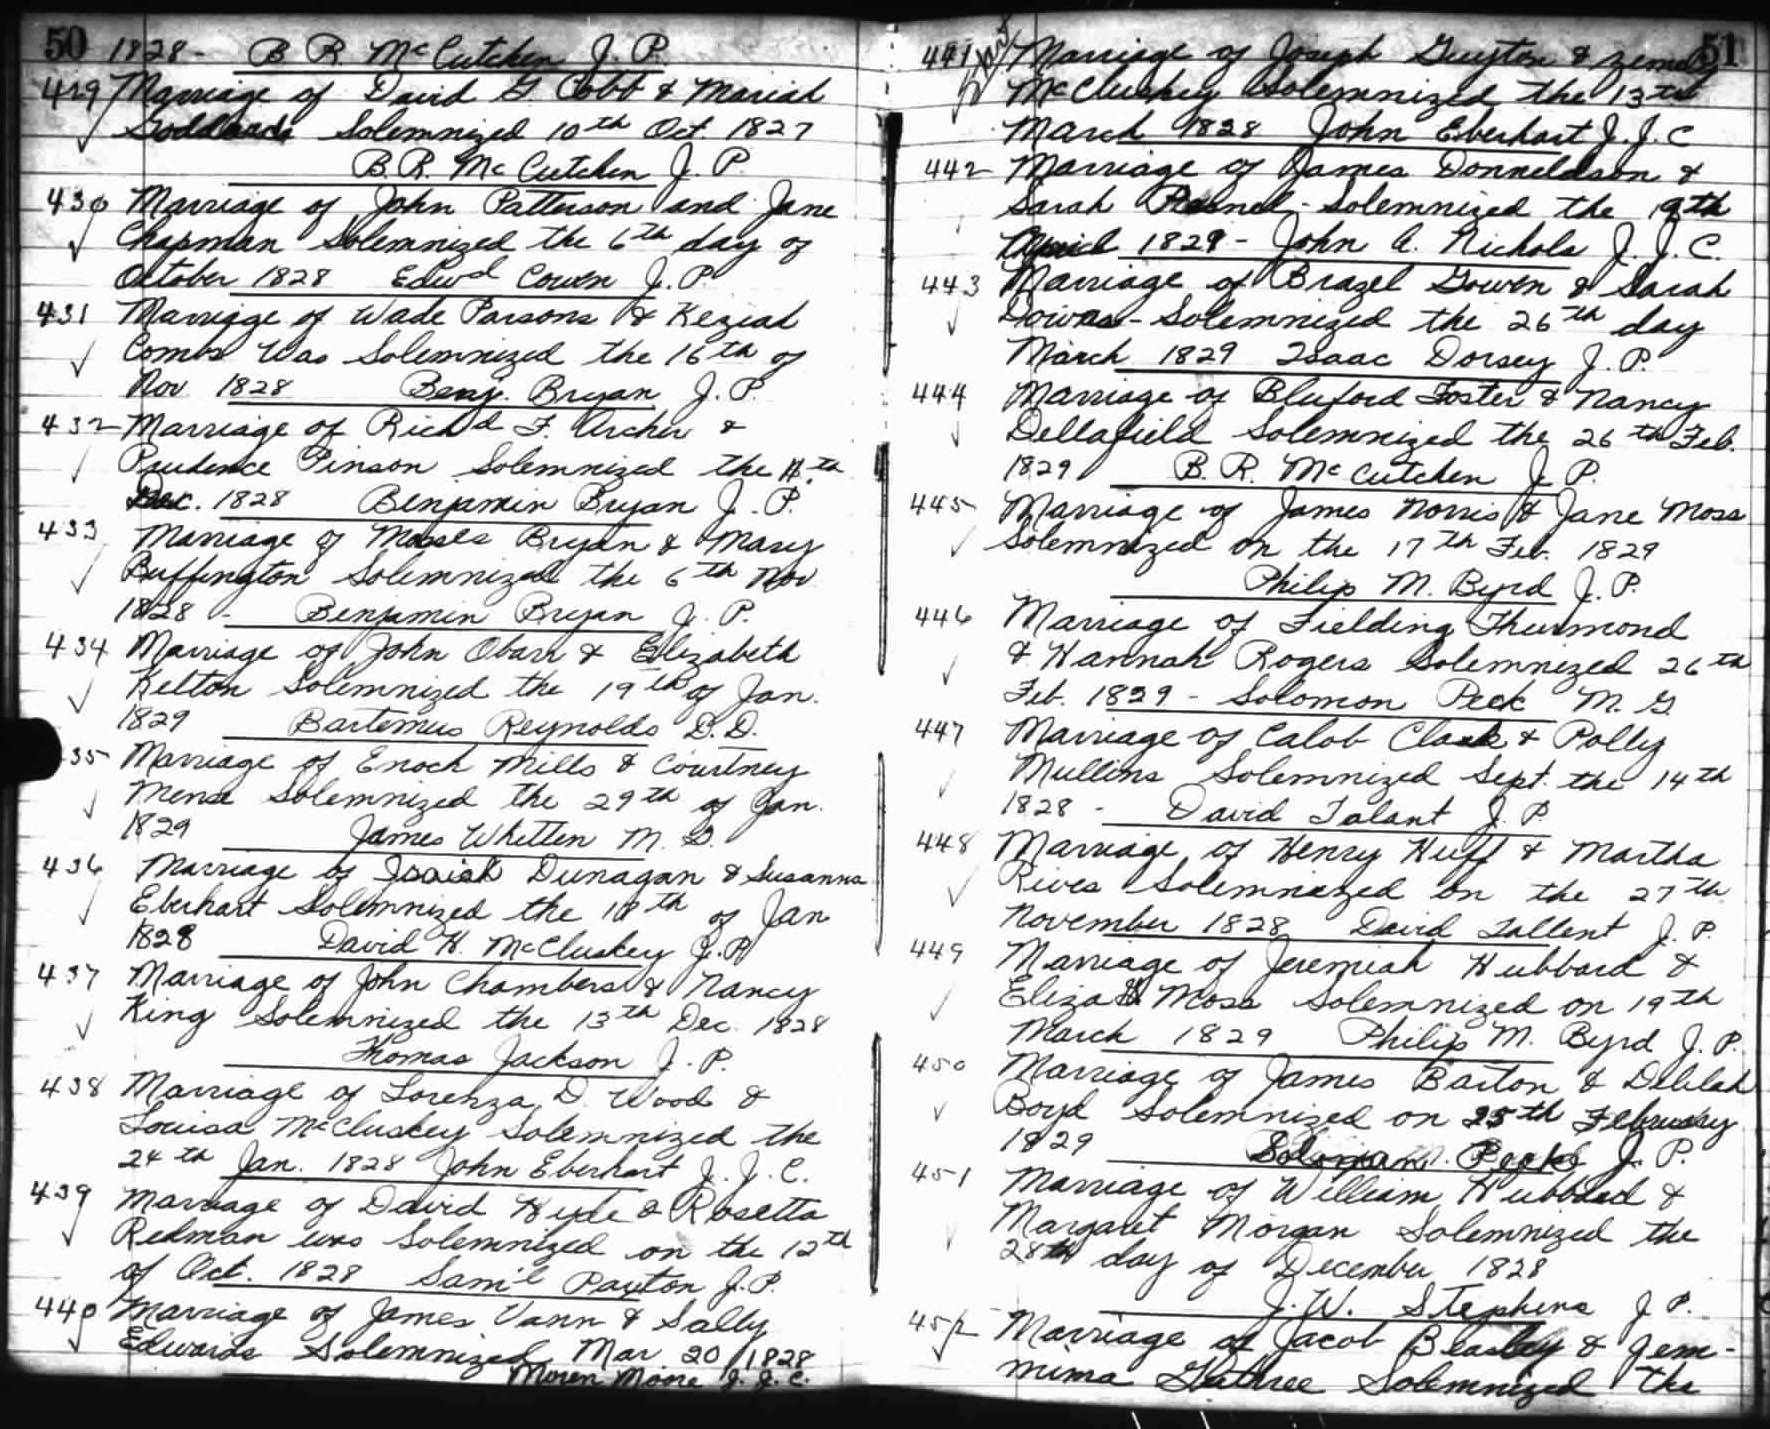 50 1828 - B R. McCutchen J. P.
429 Marriage of David G Cobb & Mariah
Solemnized 10th Oct. 1827
B. R. McCutchen J. P.
430 Marriage of John Patterson and Jane
Chapman Solemnized the 6th day of
October 1828 Edwd Cowen J. P.
431 Marriage of Wade Parsons & Keziah
Combs Was Solemnized the 16th of
Nov 1828 Benj. Bryan J. P.
432 Marriage of Richd F. Archer &
Prudence Pinson Solemnized the
Dec. 1828 Benjamin Bryan J. P.
433 Marriage of Moses Bryan & Mary
Buffington Solemnized the 6th Nov
1828 - Benjamin Bryan J. P.
434 Marriage of John Obarr & Elizabeth
Kelton Solemnized the 19th of Jan.
1829 Bartemus Reynolds D.D.
35 Marriage of Enoch Mills & Courtney
Solemnized the 29th of Jan.
1829 James Whitten M. G.
436 Marriage of Josiah Dunagan & Susanna
Eberhart Solemnized the of Jan
1828 David H. McCluskey J. P.
437 Marriage of John Chambers & Nancy
King Solemnized the 13th Dec. 1828
Thomas Jackson J. P.
438 Marriage of Lorenza D. Wood &
Louisa McCluskey Solemnized the
24th Jan. 1828 John Eberhart J. J. C.
439 Marriage of David Hyde & Rosetta
Redman was Solemnized on the 12th
of Oct. 1828 Saml Payton J. P.
440 Marriage of James Vann & Sally
Edwards Solemnized Mar. 20 1828
Moore J. J. C.
51
441 Marriage of Joseph Guyton &
McCluskey Solemnized the 13th
March 1828 John Eberhart J. J. C
442 Marriage of James Donneldson &
Sarah - Solemnized the 19th
April 1829 - John A. Nichols J. J. C.
443 Marriage of Brazel Gowen & Sarah
- Solemnized the 26th day
March 1829 Isaac Dorsey J. P.
444 Marriage of Bluford Foster & Nancy
Dellafield Solemnized the 26th Feb.
1829 B. R. McCutchen J. P.
445 Marriage of James Norris & Jane Moss
Solemnized on the 17th Feb. 1829
Philip M. Byrd J. P.
446 Marriage of Fielding Thurmond
& Hannah Rogers Solemnized 26th
Feb. 1829 - Solomon Peck M. G.
447 Marriage of Calob Clark & Polly
Mullins Solemnized Sept. the 14th
1828 - David Talant J. P.
448 Marriage of Henry Huff & Martha
Rives Solemnized on the 27th
November 1828 David Tallent J. P.
449 Marriage of Jeremiah Hubbard &
Eliza Moss Solemnized on 19th
March 1829 Philip M. Byrd J. P.
450 Marriage of James Barton & Delilah
Boyd Solemnized on 25th February
1829 Peck J. P.
451 Marriage of William Hubbard &
Margaret Morgan Solemnized the
28th day of December 1828
J. W. Stephens J P.
452 Marriage of Jacob Beasley & Jem-
mima Solemnized the